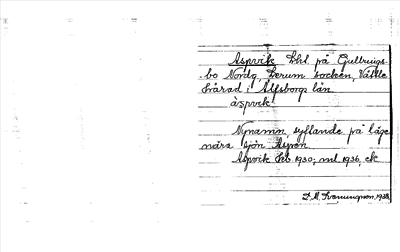 Aspvik Lht på Gullrings-
bo Nordg, Lerum socken, Vättle
härad i Älfsborgs län.
àspvik
Nynamn, syftande på läge
nära sjön Aspen.
Aspvik hb 1930; ml 1936, ek
D. A. 1938